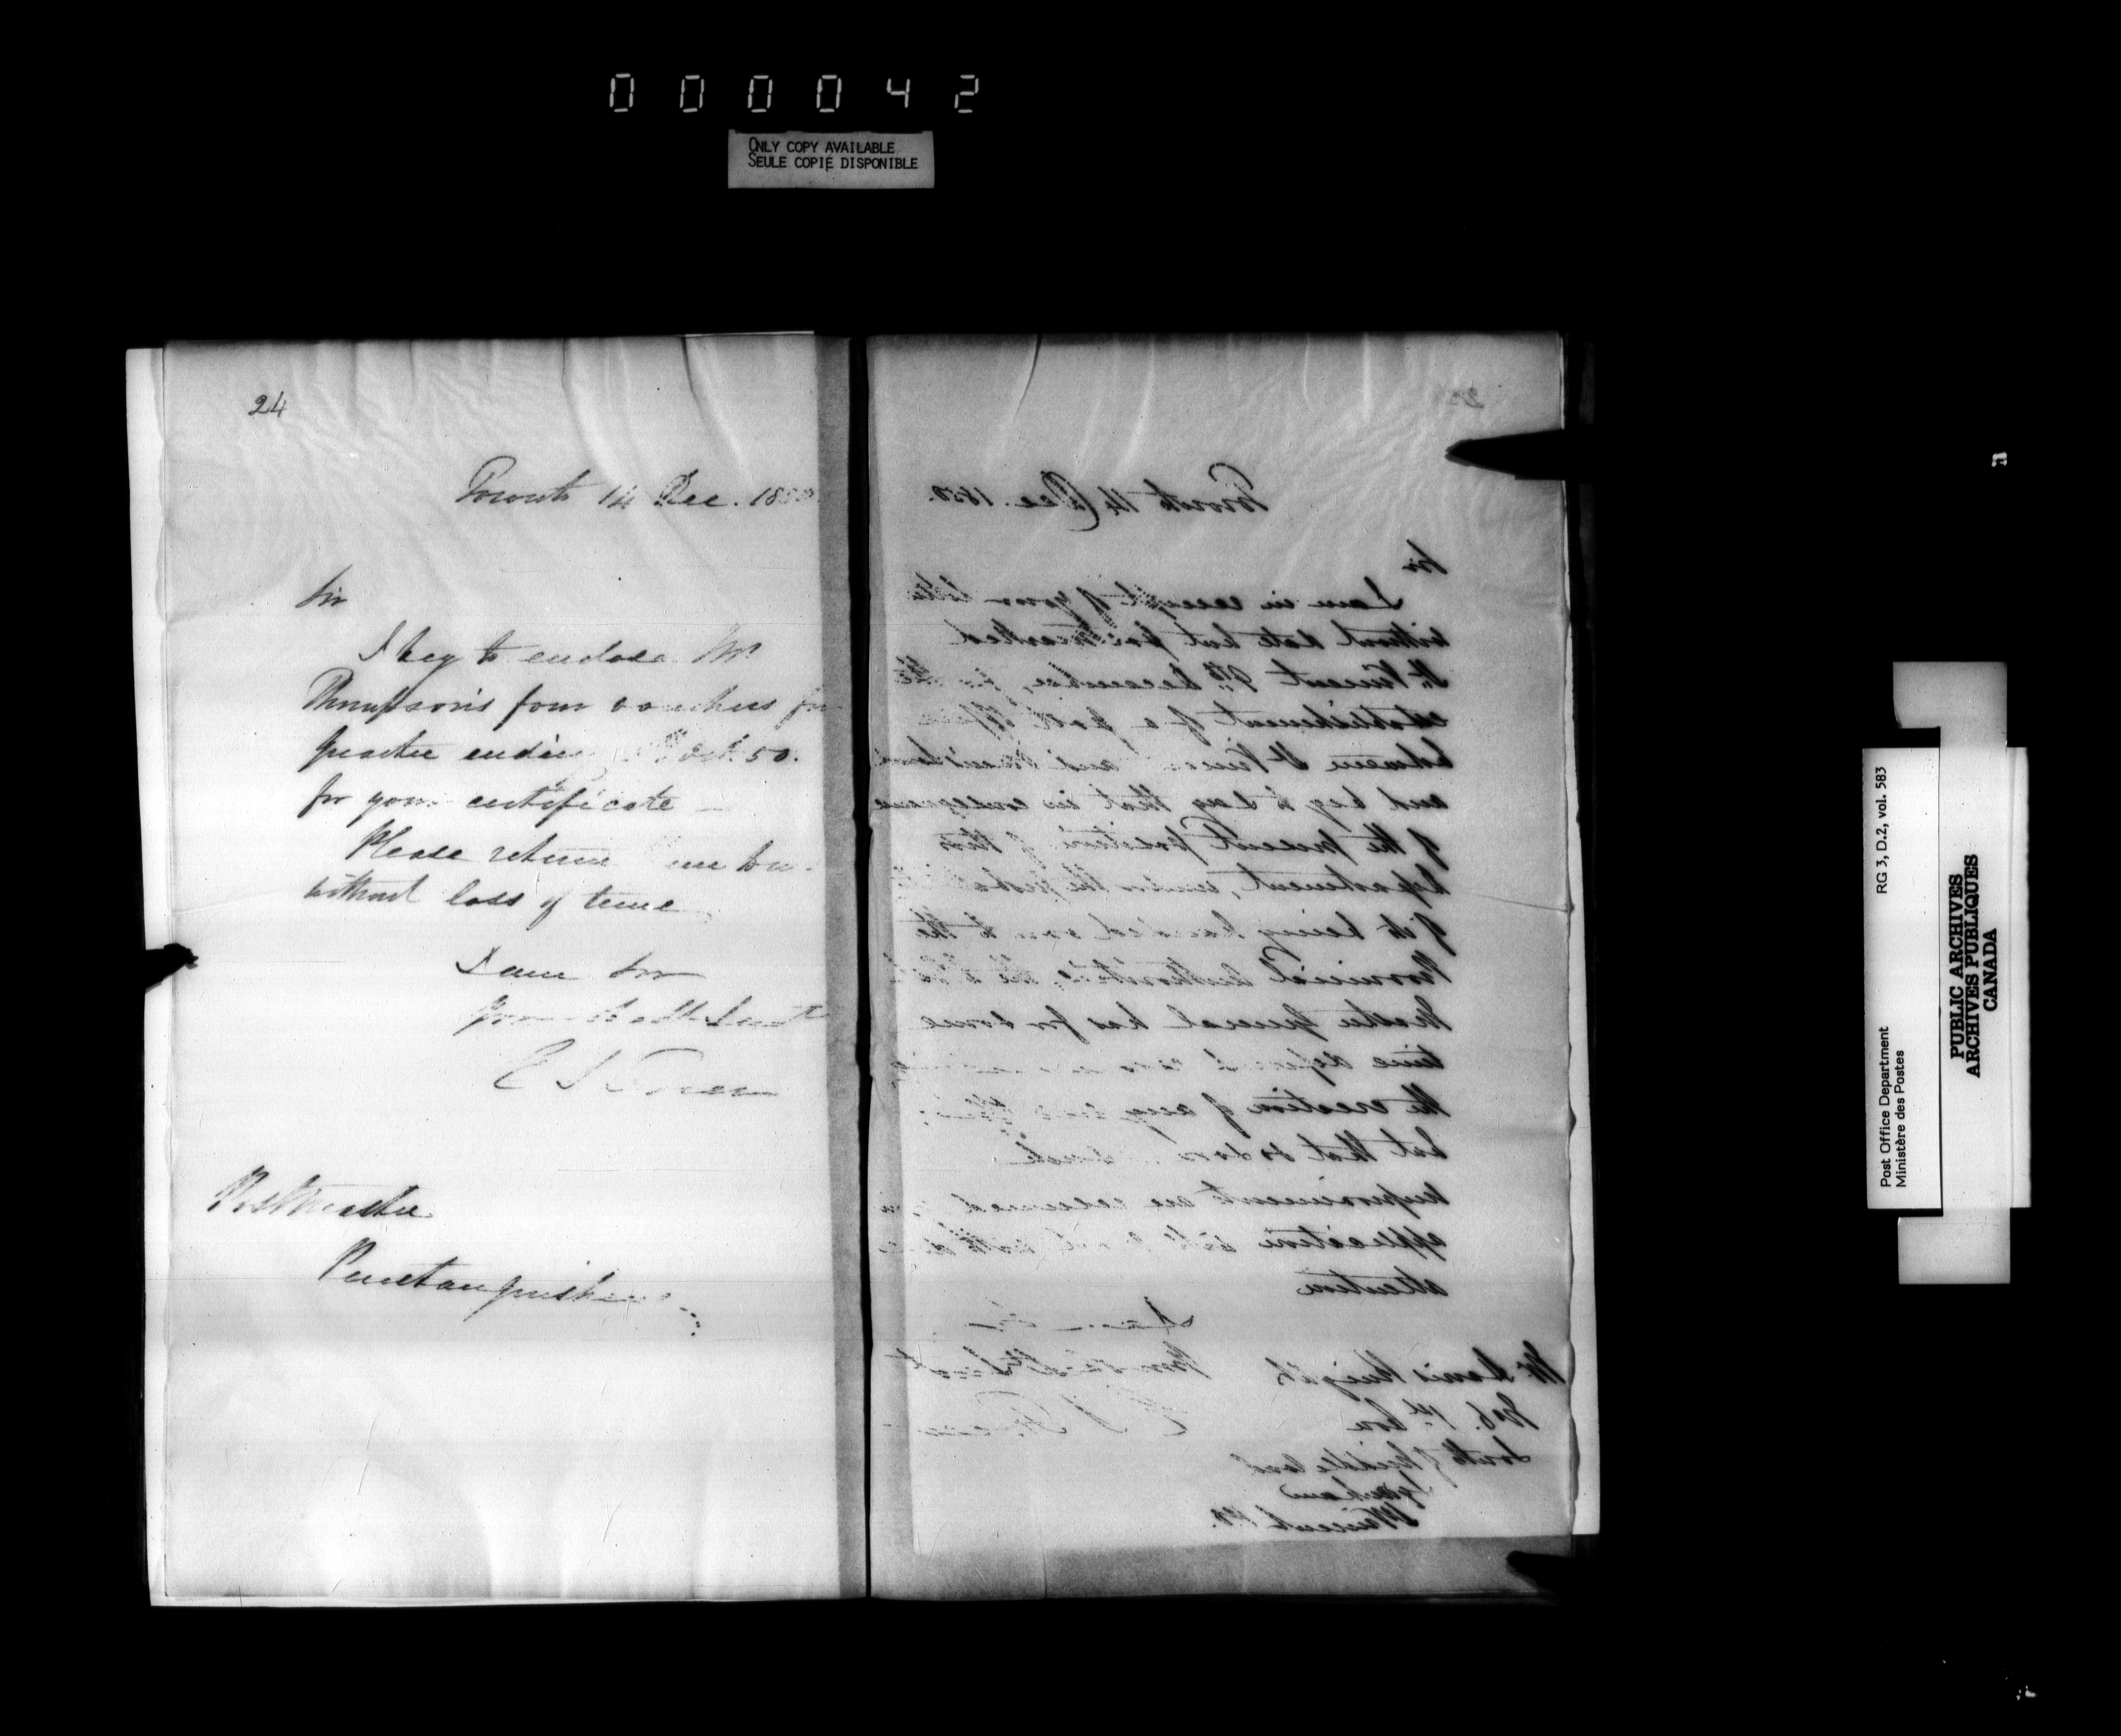 000042
ONLY COPY AVAILABLE
SEULE COPIE DISPONIBLE
24
Toronto 14 Dec. 1850
Sir
I beg to enclose Mr
Thompson's four vouchers for
quarter ending Oct. 50.
for your certificate —
Please return
without loss of time
I am Sir
Postmaster
Penetanguishene
Toronto 14 Dec. 1850.
Sir
I am in receipt of your letter
without date but postmarked
St. Vincent 9th December, for the
establishment of a post office
between St Vincent and
and beg to say that in consequence
of the present position of this
department, under the
of its being handed over to the
Provincial authorities, the Post
Master General has for some
time
the creation of any new offices
but that so soon such
improvements are resumed your
application will
attention
I am Sir
Mr Knight
No 6. 1st Con
South of
St Vincent P.O.
Post Office Department
Ministère des Postes
RG 3, D.2, vol. 583
PUBLIC ARCHIVES
ARCHIVES PUBLIQUES
CANADA